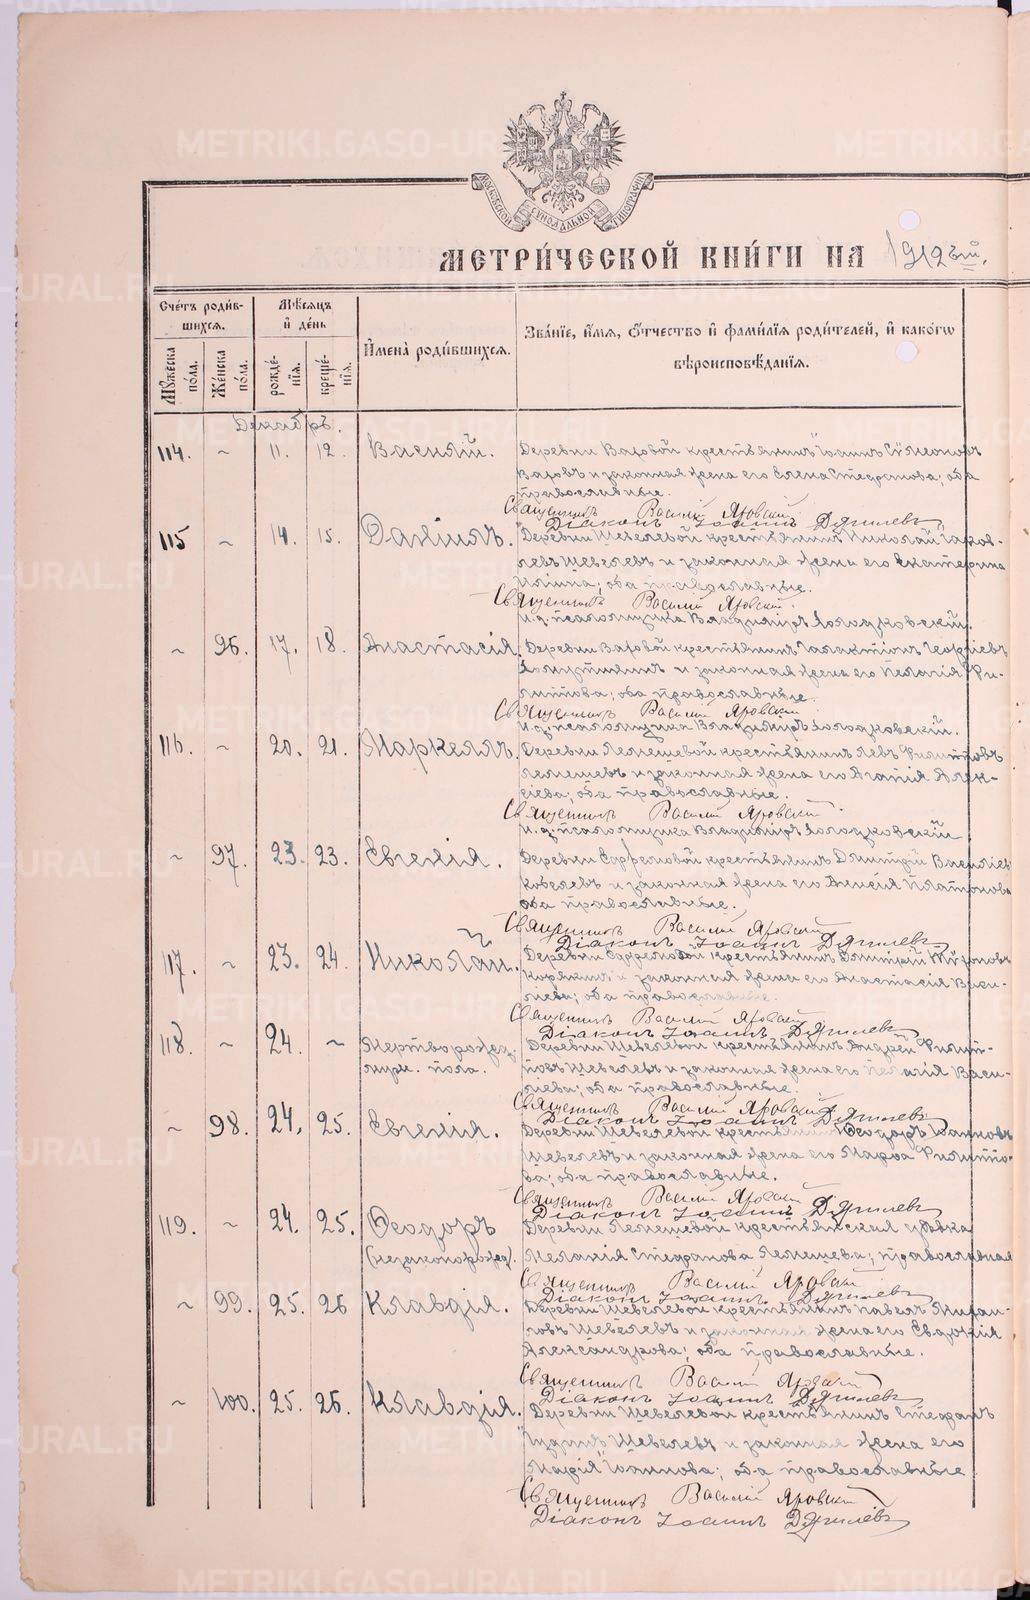 МЕТРИ́ЧЕСКОЙ КНИ́ГИ НА 1912ый.
Сче́тъ роди́в-
шихся.
Мѣсяцъ
и де́нь
Имена́ роди́вшихся.
Зва́нїе, и́мя, ѻ́тчество и фами́лїя роди́телей, и како́гѡ
вѣроисповѣ́данїя.
Мꙋ́жеска по́ла.
Же́нска по́ла.
рожде́нїя.
креще́нїя.
Декабрь.
114. ~ 11. 12. Василій. Деревни Варовой крестьянинъ Іоаннъ Симеоновъ
Варовъ и законная жена его Елена Стефанова; оба
православные.
Священникъ Василій Яровскій
Діаконъ Іоаннъ Дягилевъ
115 ~ 14. 15. Даніилъ. Деревни Шевелевой крестьянинъ Николай Іаков-
левъ Шевелевъ и законная жена его Екатерина
Иліина; оба православные.
Священникъ Василій Яровскій.
и. д. псаломщика Владиміръ Холодковскій.
~ 96. 17. 18. Анастасія. Деревни Варовой крестьянинъ Галактіонъ Георгіевъ
и законная жена его Пелагія Фи-
липпова; оба православные.
Священникъ Василій Яровскій
и. д. псаломщика Владиміръ Холодковскій.
116. ~ 20. 21. Маркеллъ. Деревни Лемешевой крестьянинъ Левъ Филипповъ
Лемешевъ и законная жена его Агапія Алек-
сіева; оба православные.
Священникъ Василій Яровскій
и. д. псаломщика Владиміръ Холодковскій
~ 97. 23. 23. Евгенія. Деревни крестьянинъ Димитрій Васильев
Кобелевъ и законная жена его Анисія Платонова
оба православные.
Священникъ Василій Яровскій
Діаконъ Іоаннъ Дягилевъ
117. ~ 23. 24. Николай. Деревни крестьянинъ Димитрій
и законная жена его Анастасія Васи-
лиева; оба православные.
Священникъ Василій Яровскій
Діаконъ Іоаннъ Дягилевъ
118. ~ 24. ~ Мертворожд. Деревни Шевелевой крестьянинъ Андрей Филип-
муж. пола. повъ Шевелевъ и законная жена его Пелагія Васи-
лиева; оба православные.
Священникъ Василій Яровскій
Діаконъ Іоаннъ Дягилевъ
~ 98. 24. 25. Евгенія. Деревни Шевелевой крестьянинъ Ѳеодоръ Іоанновъ
Шевелевъ и законная жена его Марѳа Филиппо-
ва; оба православные.
Священникъ Василій Яровскій
Діаконъ Іоаннъ Дягилевъ
119. ~ 24. 25. Ѳеодоръ Деревни Лемешевой крестьянская дѣвка
(незаконорожд). Меланія Стефанова Лемешева; православная
Священникъ Василій Яровскій
Діаконъ Іоаннъ Дягилевъ
~ 99. 25. 26 Клавдія. Деревни Шевелевой крестьянинъ Павелъ Михаи-
ловъ Шевелевъ и законная жена его Евдокія
Александрова; оба православные.
Священникъ Василій Яровскій
Діаконъ Іоаннъ Дягилевъ
~ 100. 25. 26. Клавдія. Деревни Шевелевой крестьянинъ Стефанъ
Шевелевъ и законная жена его
Марія Іоаннова; оба православные
Священникъ Василій Яровскій
Діаконъ Іоаннъ Дягилевъ
METRIKI.GASO-URAL.RU